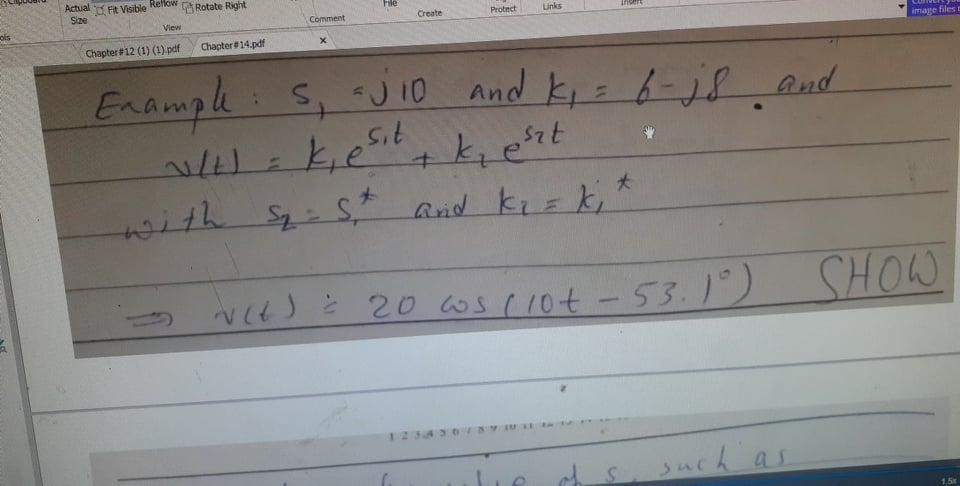 Actual Size
Fit Visible
Reflow
Rotate Right
View
Comment
File
Create
Protect
Links
Insert
image files
Chapter#12 (1) (1).pdf
Chapter#14.pdf
x
Example : s₁ = j10 and k₁ = 6 - j8 . and
v(t) = k₁e^s₁t + k₂ e^s₂t
with s₂ = s₁* and k₂ = k₁*
⇒ v(t) = 20 cos (10t - 53.1°) SHOW
of s such as
1.5x